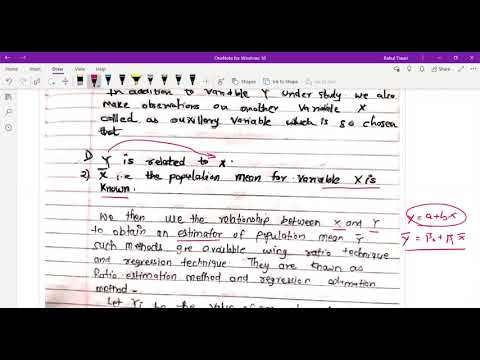 OneNote for Windows 10
Rahul Tiwari
Home Insert Draw View Help
Shapes Ink to Shape
Share
In addition to variable Y under study we also
make observations on another variable X
called as auxillary variable which is so chosen
that
1) Y is related to x.
2) X̄ i.e the population mean for variable X is
known.
We then use the relationship between X and Y
to obtain an estimator of population mean Y
such methods are available using ratio technique
and regression technique. They are known as
Ratio estimation method and regression estimation
method.
Let Yi be the value of
Y = a + bx
ȳ = β₀ + β₁ x̄